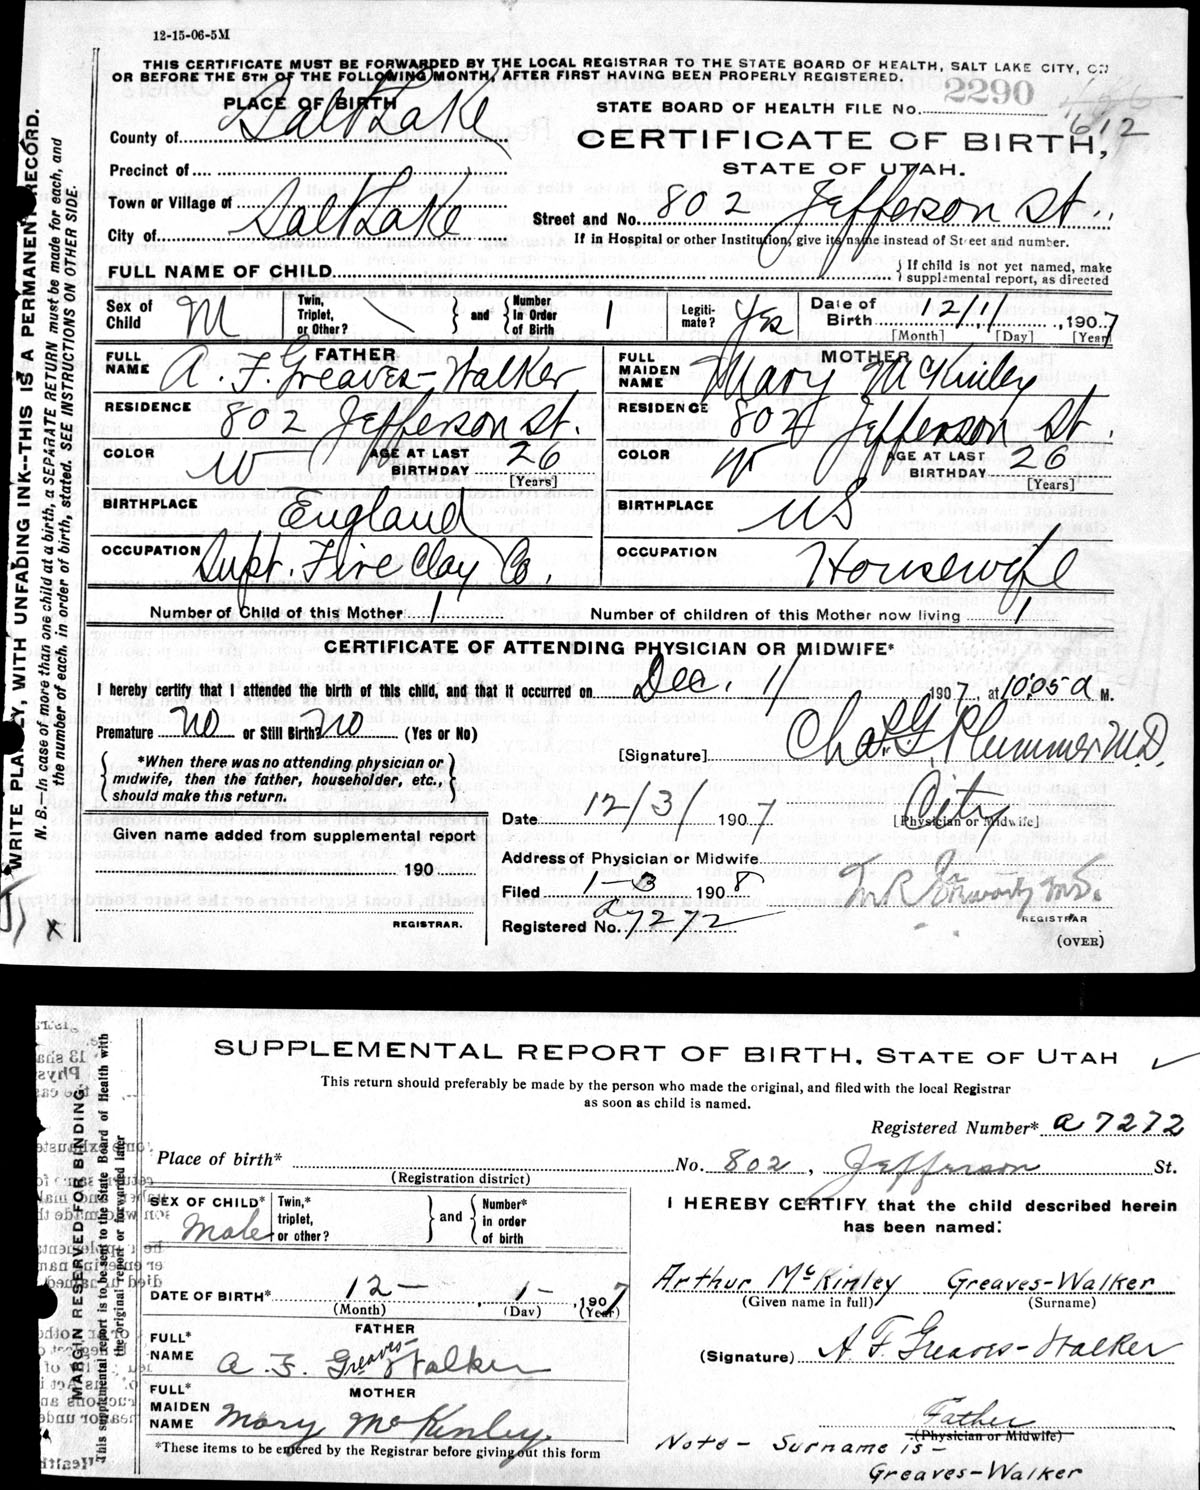 12-15-06-5M
THIS CERTIFICATE MUST BE FORWARDED BY THE LOCAL REGISTRAR TO THE STATE BOARD OF HEALTH, SALT LAKE CITY, ON
OR BEFORE THE 5TH OF THE FOLLOWING MONTH, AFTER FIRST HAVING BEEN PROPERLY REGISTERED.
PLACE OF BIRTH
STATE BOARD OF HEALTH FILE No. 2290
612
County of Salt Lake
CERTIFICATE OF BIRTH,
STATE OF UTAH.
Precinct of
Town or Village of
City of Salt Lake
Street and No. 802 Jefferson St.
If in Hospital or other Institution, give its name instead of Street and number.
FULL NAME OF CHILD
{ If child is not yet named, make supplemental report, as directed
Sex of Child M
Twin, Triplet, or Other? } and { Number In Order of Birth 1
Legitimate? Yes
Date of Birth 12/1, 1907
[Month] [Day] [Year]
FATHER
FULL NAME A. F. Greaves-Walker
RESIDENCE 802 Jefferson St.
COLOR W AGE AT LAST BIRTHDAY 26 [Years]
BIRTHPLACE England
OCCUPATION Supt. Fire Clay Co.
MOTHER
FULL MAIDEN NAME Mary McKinley
RESIDENCE 802 Jefferson St.
COLOR W AGE AT LAST BIRTHDAY 26 [Years]
BIRTHPLACE US
OCCUPATION Housewife
Number of Child of this Mother 1 Number of children of this Mother now living 1
CERTIFICATE OF ATTENDING PHYSICIAN OR MIDWIFE*
I hereby certify that I attended the birth of this child, and that it occurred on Dec. 1/ 1907, at 10:05 a M.
Premature no or Still Birth? no (Yes or No)
[Signature] Chas. G. Plummer M.D.
{ *When there was no attending physician or midwife, then the father, householder, etc., should make this return. }
Date 12/3/ 1907
City
[Physician or Midwife]
Given name added from supplemental report
190
REGISTRAR.
Address of Physician or Midwife
Filed 1-3 1908
REGISTRAR
Registered No. a7272
(OVER)
WRITE PLAINLY, WITH UNFADING INK--THIS IS A PERMANENT RECORD.
N. B.—In case of more than one child at a birth, a SEPARATE RETURN must be made for each, and
the number of each, in order of birth, stated. SEE INSTRUCTIONS ON OTHER SIDE.
x
SUPPLEMENTAL REPORT OF BIRTH, STATE OF UTAH
This return should preferably be made by the person who made the original, and filed with the local Registrar
as soon as child is named.
Registered Number* a7272
Place of birth* No. 802, Jefferson St.
(Registration district)
SEX OF CHILD* Male
Twin,* triplet, or other? } and { Number* in order of birth
I HEREBY CERTIFY that the child described herein
has been named:
DATE OF BIRTH* 12 – , 1 – , 1907
(Month) (Day) (Year)
Arthur McKinley Greaves-Walker
(Given name in full) (Surname)
FULL* NAME FATHER
A. F. Greaves-Walker
(Signature) A. F. Greaves-Walker
FULL* MAIDEN NAME MOTHER
Mary McKinley
Father
(Physician or Midwife)
*These items to be entered by the Registrar before giving out this form
Note - Surname is -
Greaves-Walker
MARGIN RESERVED FOR BINDING.
This supplemental report is to be sent to the State Board of Health with
the original report or forwarded later